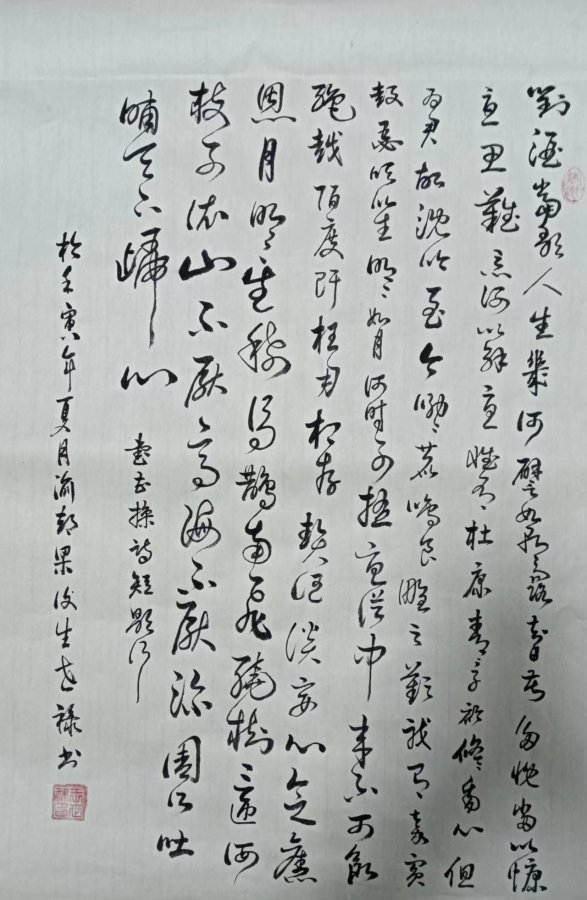 對酒當歌人生幾何譬如朝露去日苦多慨當以慷
憂思難忘何以解憂惟有杜康青青子衿悠悠我心但
為君故沈吟至今呦呦鹿鳴食野之苹我有嘉賓
鼓瑟吹笙明明如月何時可掇憂從中來不可斷
絕越陌度阡枉用相存契闊談讌心念舊
恩月明星稀烏鵲南飛繞樹三匝何
枝可依山不厭高海不厭深周公吐
哺天下歸心
書曹操詩短歌行
於壬寅年夏月渝生祿書